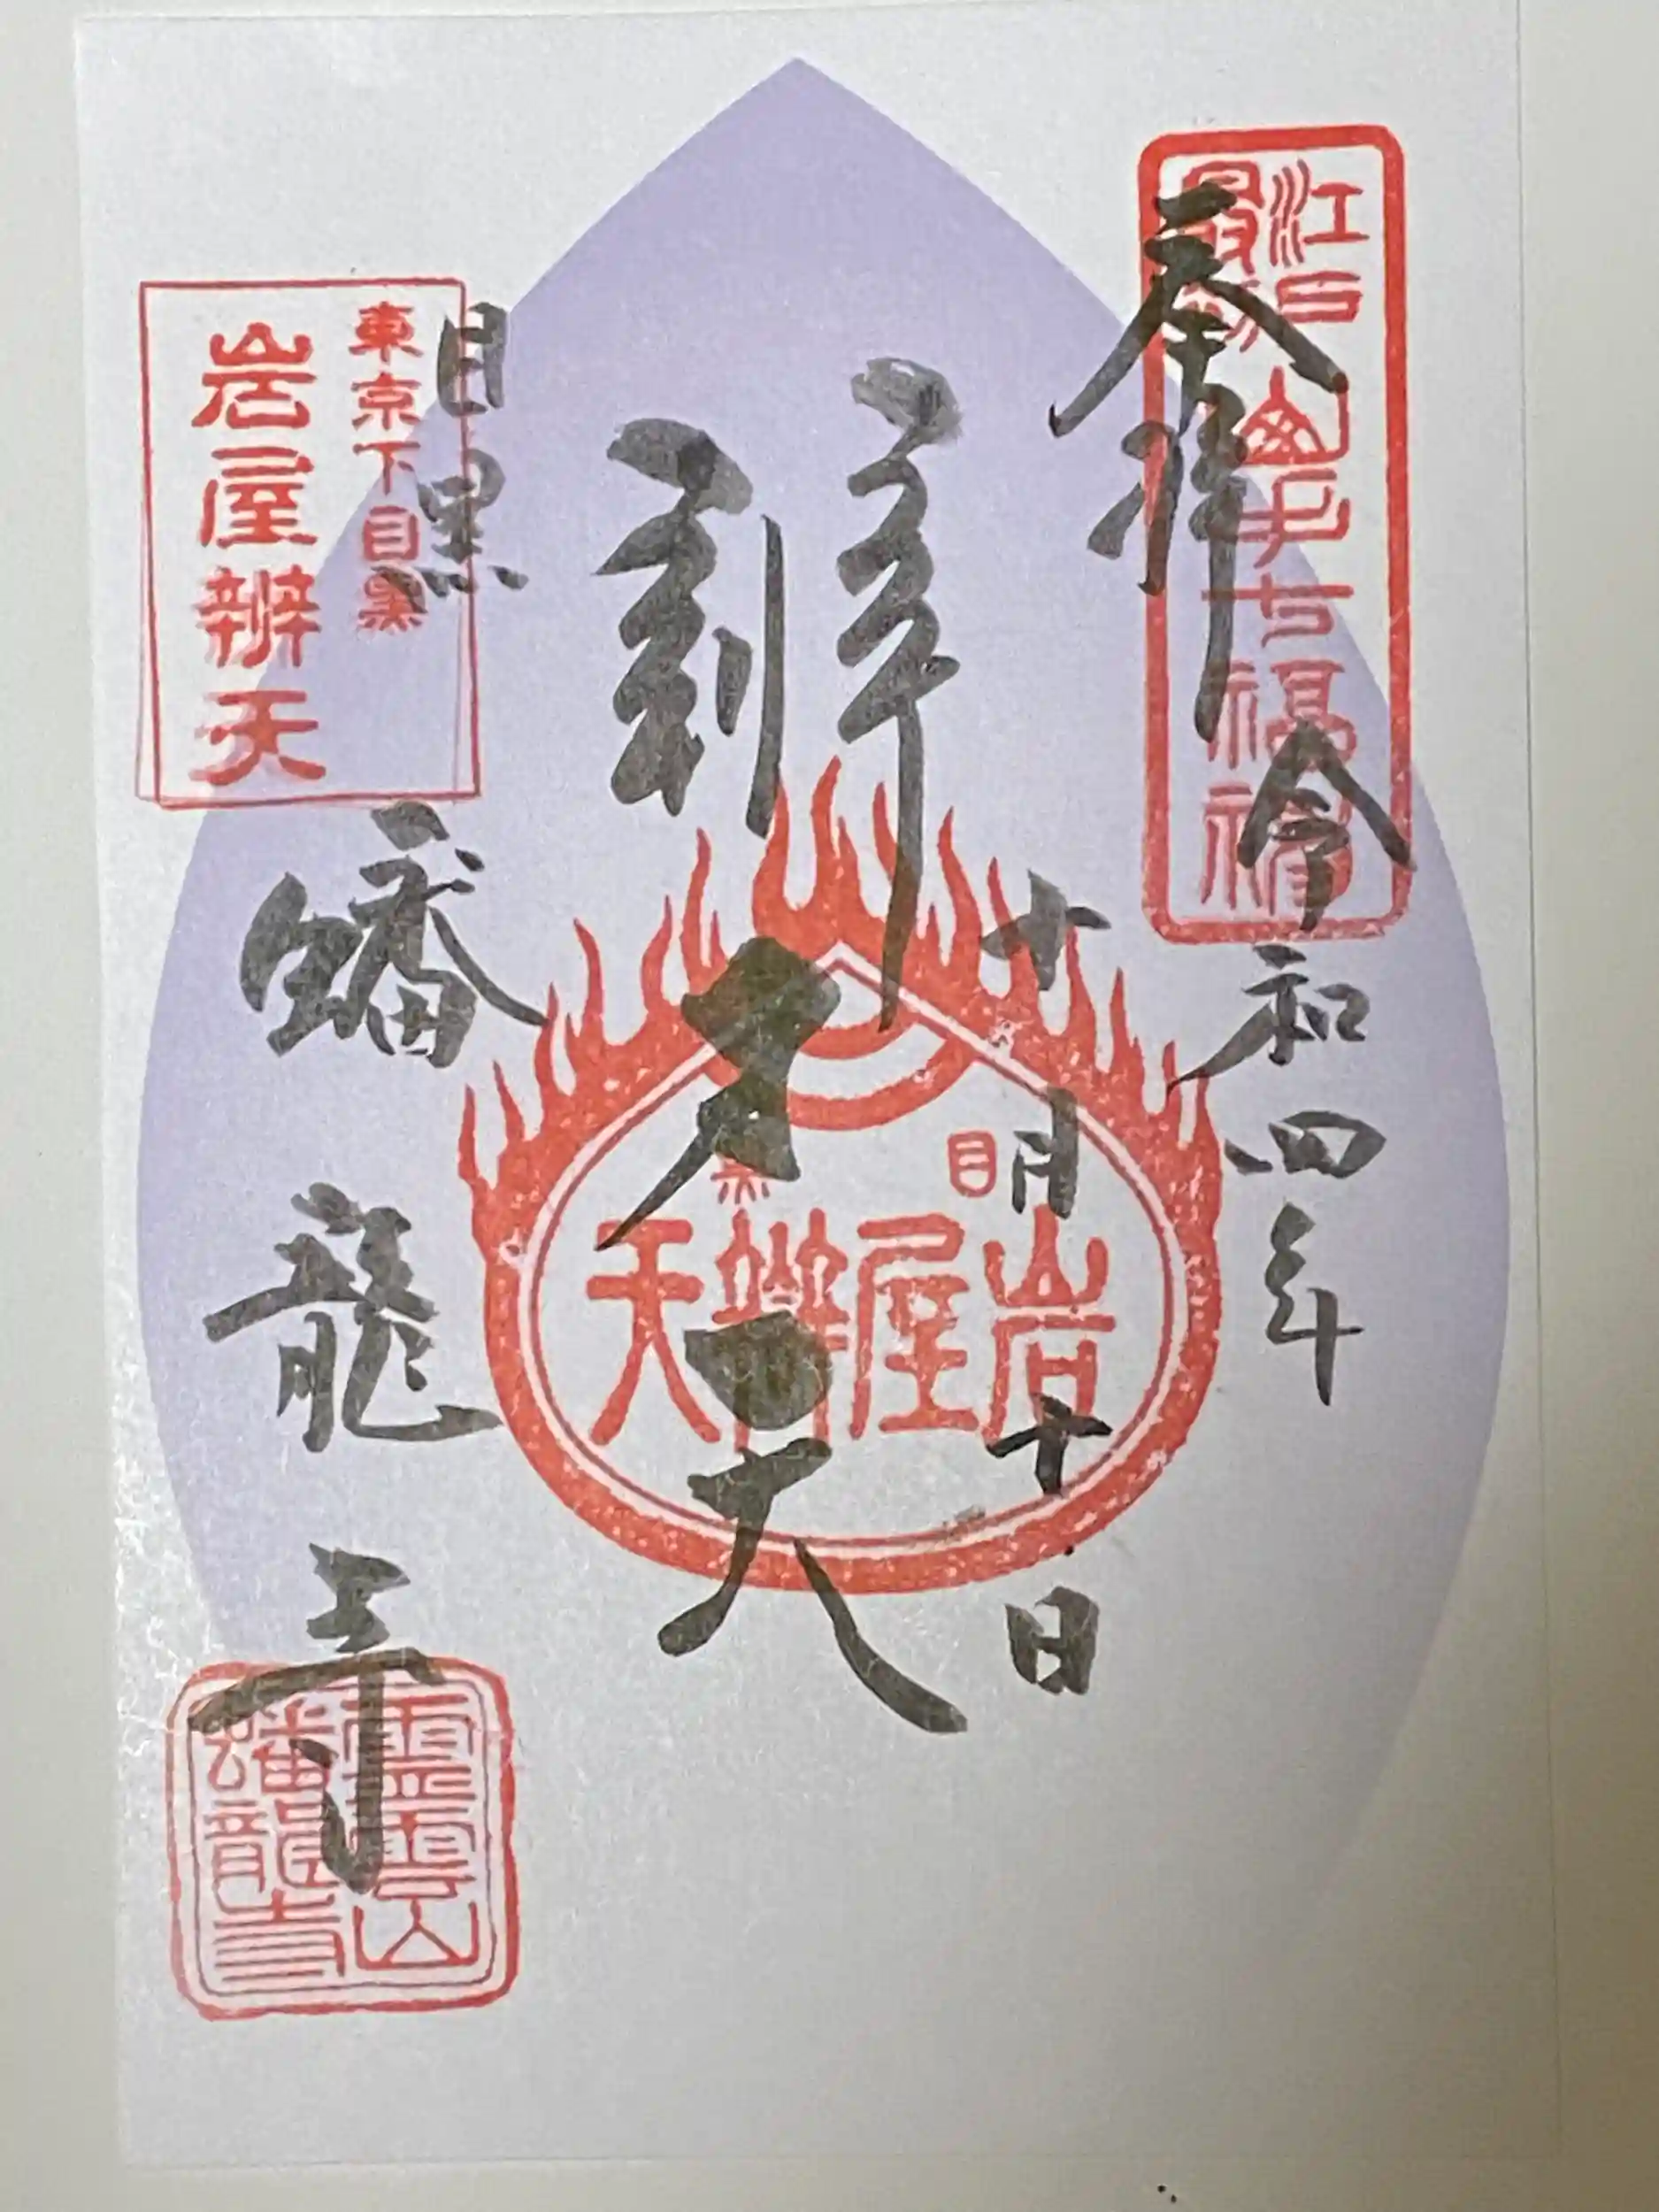 江戸最初
山手七福神
奉拝
令和四年
十月十日
辨才天
目黒
岩屋辨天
目黒
蟠龍寺
東京下目黒
岩屋辨天
霊雲山
蟠龍寺